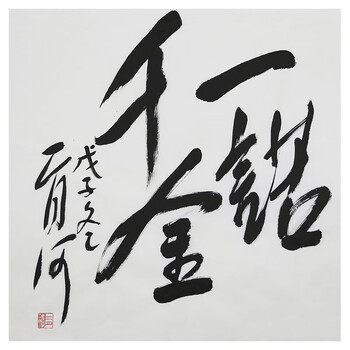 一諾
千金
戊子冬
二月河